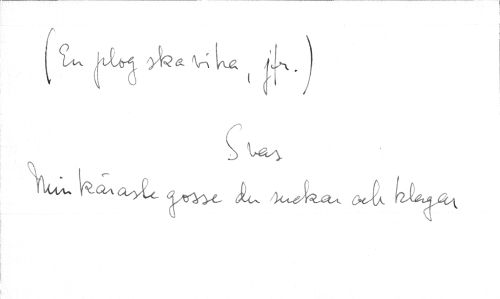 (En plog ska vika, jfr.)
Svar
Min käraste gosse du suckar och klagar